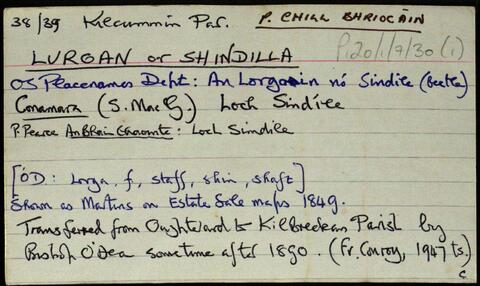 38/39 Kilcummin Par. P. CHILL BHRIOCÁIN
P.20/1/7/30 (1)
LURGAN or SHINDILLA
OS Placenames Dept: An Lorgain nó Sindile (beetle)
Conamara (S. Mac G) Loch Sindíle
P. Pearce An Bhean Chaointe: Loch Simdile
[ÓD: Lorga, f, staff, shin, shaft]
Shown as Martins on Estate Sale maps 1849.
Transferred from Oughterard to Kilbreekan Parish by
Bishop O'Dea sometime after 1890. (Fr. Conroy, 1947 ts.)
c